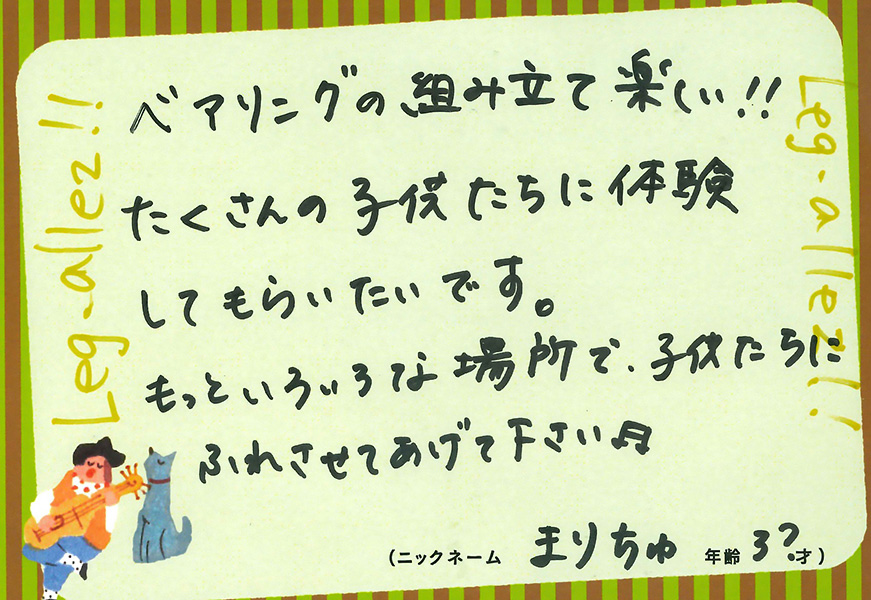 Leg-allez!!
ベアリングの組み立て楽しい!!
たくさんの子供たちに体験
してもらいたいです。
もっといろいろな場所で、子供たちに
ふれさせてあげて下さい♬
(ニックネーム まりちゅ 年齢 3?才)
Leg-allez!!